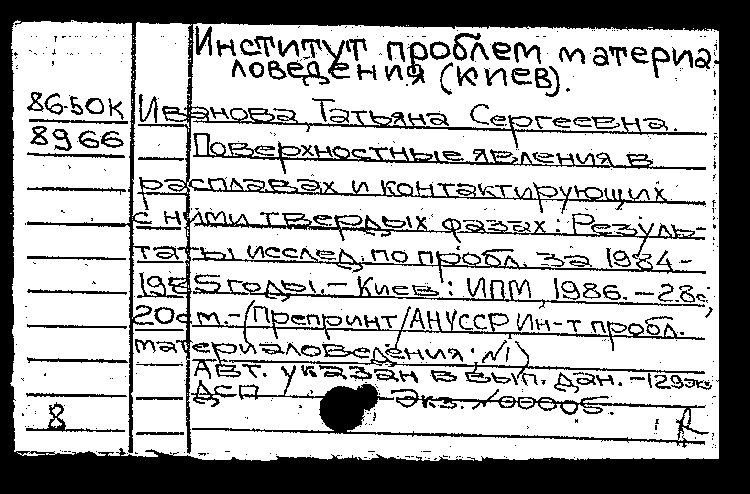 Институт проблем материа-
ловедения (Киев).
86-50К Иванова, Татьяна Сергеевна.
8966 Поверхностные явления в
расплавах и контактирующих
с ними твердых фазах: Резуль-
таты исслед. по пробл. за 1984-
1985 годы. - Киев: ИПМ, 1986. - 28с;
20см. - (Препринт/АНУССР, Ин-т пробл.
материаловедения; №1)
Авт. указан в вып. дан. - 129экз.
ДСП Экз. №00005.
8